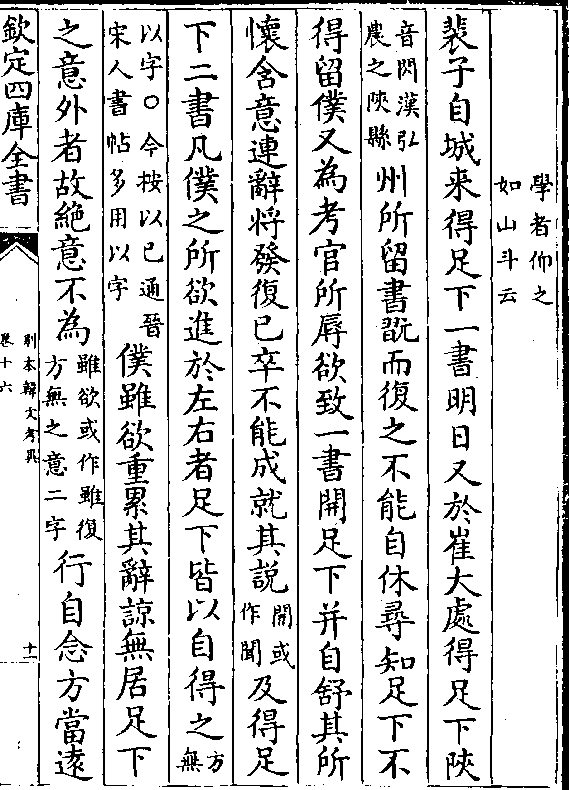 學者仰之
如山斗云
裴子自城来得足下一書明日又於崔大處得足下陜
音閃漢𢎞
農之陜縣
州所留書翫而復之不能自休尋知足下不
得留僕又為考官所辱欲致一書開足下并自舒其所
懷含意連辭将發復已卒不能成就其説
開或
作聞
及得足
下二書凡僕之所欲進於左右者足下皆以自得之
方
無
以字○今按以已通晉
宋人書帖多用以字
僕雖欲重累其辭諒無居足下
之意外者故絶意不為
雖欲或作雖復
方無之意二字
行自念方當逺
欽定四庫全書
别本韓文考異
卷十六
十一